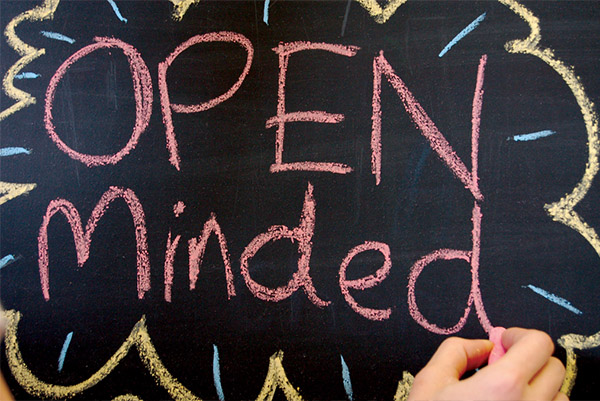 OPEN
Minded